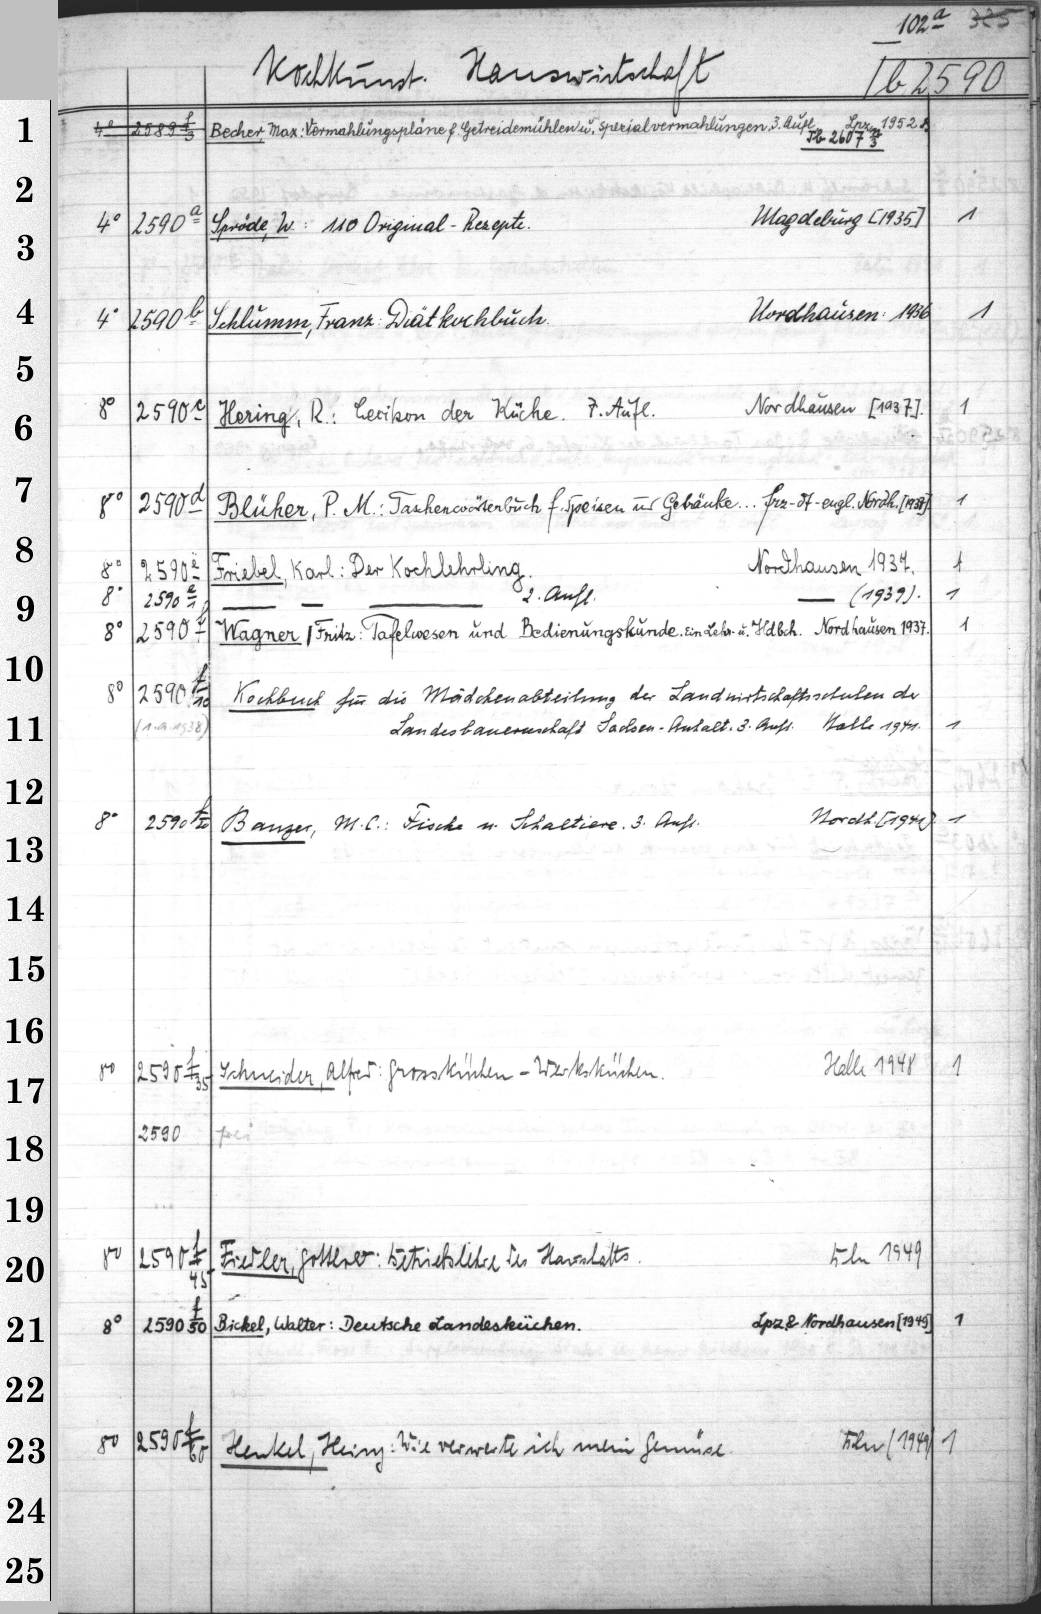 102a 325
Kochkunst. Hauswirtschaft
Ib 2590
1
4° 2589 f/3 Becher, Max: Vermahlungspläne f. Getreidemühlen u. Spezialvermahlungen, 3. Aufl. Lpz. 1952
Ib 2607 n/3
2
4° 2590 a Spröde, W.: 110 Original-Rezepte. Magdeburg [1935] 1
3
4
4° 2590 b Schlumm, Franz: Diätkochbuch. Nordhausen: 1936 1
5
8° 2590 c Hering, R.: Lexikon der Küche. 7. Aufl. Nordhausen [1937]. 1
6
7
8° 2590 d Blüher, P. M.: Taschenwörterbuch f. Speisen und Getränke... frz-dt-engl. Nordh. [1938] 1
8
8° 2590 e Friebel, Karl: Der Kochlehrling. Nordhausen 1937. 1
8° 2590 e/1 2. Aufl. (1939). 1
9
8° 2590 f Wagner, Fritz: Tafelwesen und Bedienungskunde. Ein Lehr- u. Hdbch. Nordhausen 1937. 1
10
8° 2590 f/10 Kochbuch für die Mädchenabteilung der Landwirtschaftsschulen der
11
(1.A. 1938) Landesbauernschaft Sachsen-Anhalt. 3. Aufl. Halle 1941. 1
12
8° 2590 f/20 Banzer, M.C.: Fische u. Schaltiere. 3. Aufl. Nordh. [1941] 1
13
14
15
16
8° 2590 f/35 Schneider, Alfred: Grossküchen - Werksküchen. Halle 1948 1
17
2590 frei
18
19
8° 2590 f/45 Fiedler, Gottlieb: Betriebslehre des Haushalts. Bln 1949
20
8° 2590 f/50 Bickel, Walter: Deutsche Landesküchen. Lpz & Nordhausen [1949] 1
21
22
8° 2590 f/60 Henkel, Heinz: Wie verwerte ich mein Gemüse. Bln (1949) 1
23
24
25